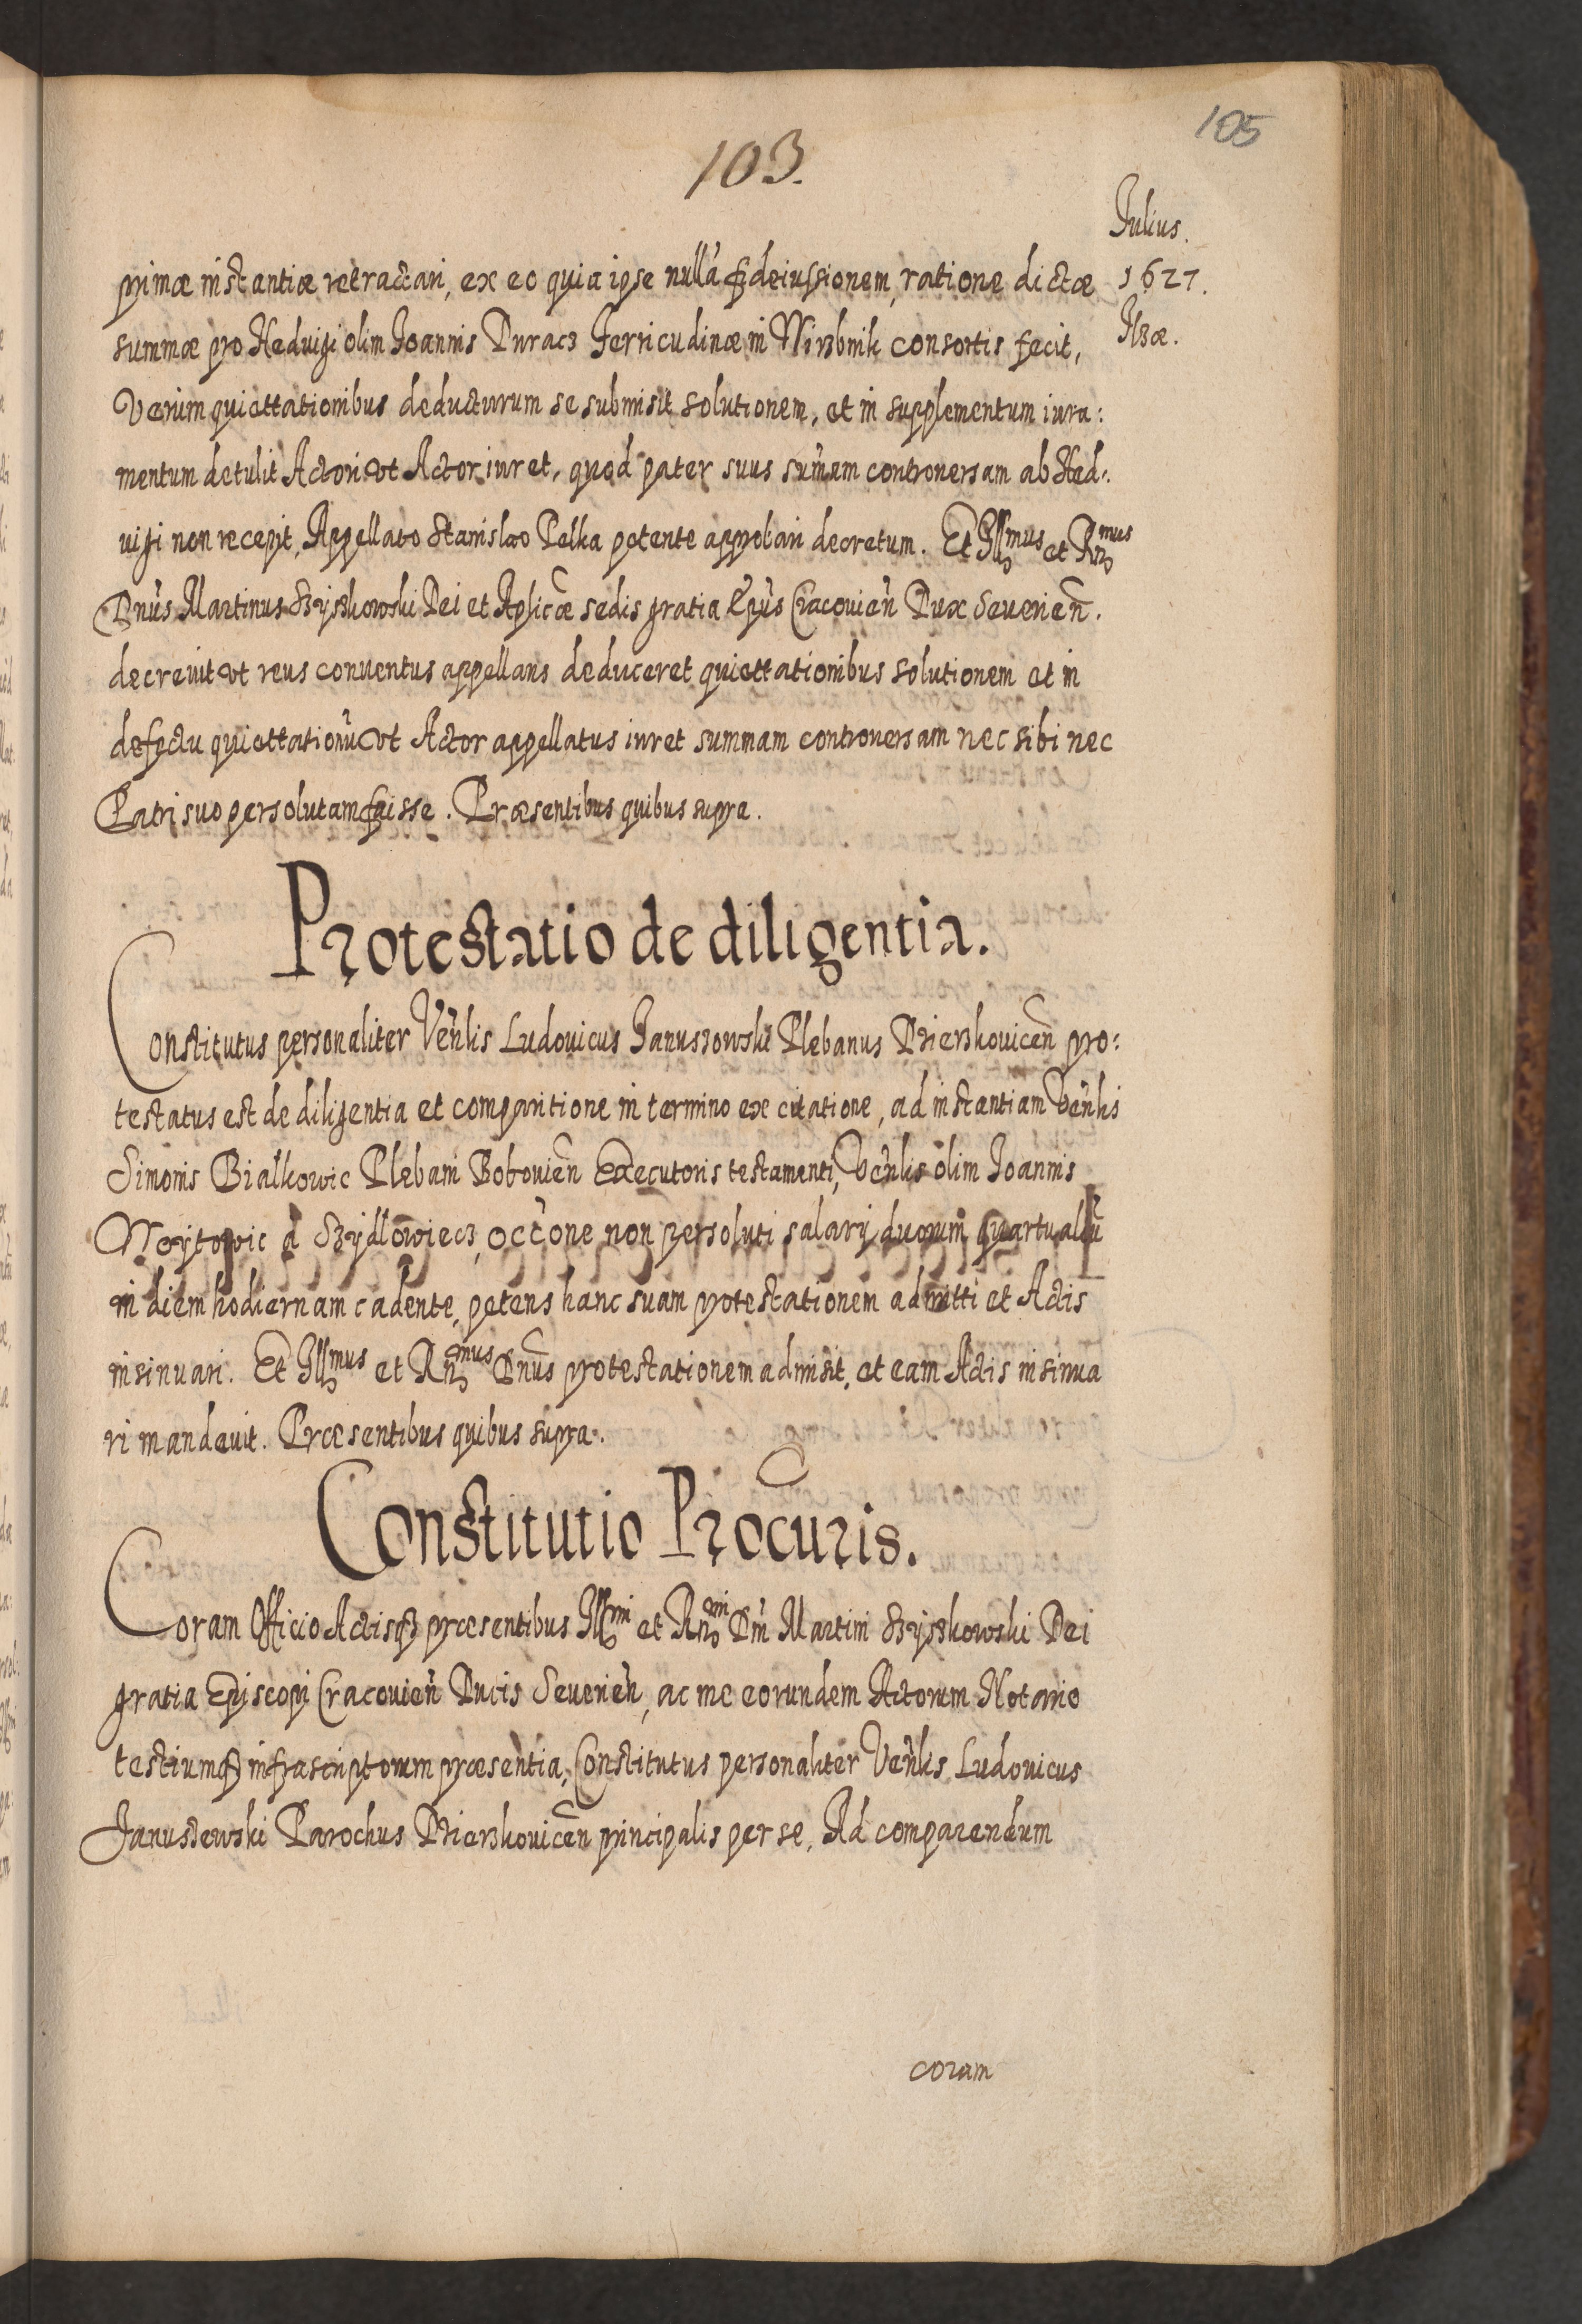 105
103.
Julius.
primæ instantiæ retractari, ex eo quia ipse nullã fideiussionem, ratione dictæ
1627.
summæ pro Hedvigi olim Joannis Duracz Ferricudinæ in Mirzbnik consortis fecit,
Ilzæ.
Verum quiettationibus deducturum se submisit solutionem, et in supplementum iura:
mentum detulit Actori vt Actor iuret, quod pater suus sum̃am controuersam ab Hed:
uigi non recepit, Appellato Stanislao Pełka petente approbari decretum. Et Illmus et Rndmus
Dnus Martinus Szyszkowski Dei et Aplicæ sedis gratia Epus Cracouien̄ Dux Seuerien̄.
decreuit vt reus conuentus appellans deduceret quiettationibus solutionem et in
defectu quiettationũ vt Actor appellatus iuret summam controuersam nec sibi nec
Patri suo persolutam fuisse. Præsentibus quibus supra.
Protestatio de diligentia.
Constitutus personaliter Venlis Ludouicus Januszowski Plebanus Dzierzkouicen̄ pro:
testatus est de diligentia et comparitione in termino ex citatione, ad instantiam Venlis
Simonis Białkowic Plebani Bobouien̄ Executoris testamenti, Venlis olim Joannis
Woytowic á Szydłowiecz, occõne non persoluti salarij duorum quartualiũ
in diem hodiernam cadente, petens hanc suam protestationem admitti et Actis
insinuari. Et Illmus et Rndmus Dnus protestationem admisit, et eam Actis insinua
ri mandauit. Præsentibus quibus supra.
Constitutio Procuris.
Coram Officio Actisq3 præsentibus Illmi et Rndmi Dni Martini Szyszkowski Dei
gratia Episcopi Cracouien̄ Ducis Seuerien̄, ac me eorundem Actorum Notario
testiumq3 infrascriptorum præsentia, Constitutus personaliter Venlis Ludouicus
Januszewski Parochus Dzierzkouicen̄ principalis per se, Ad comparendum
coram